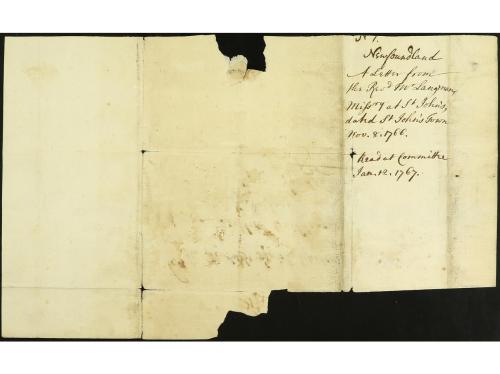 Nº 1.
Newfoundland
A Letter from
the Revd Mr Langman,
Missry at St Johns,
dated St John's Town
Nov. 8. 1766.
Read at Committee
Jan. 12. 1767.